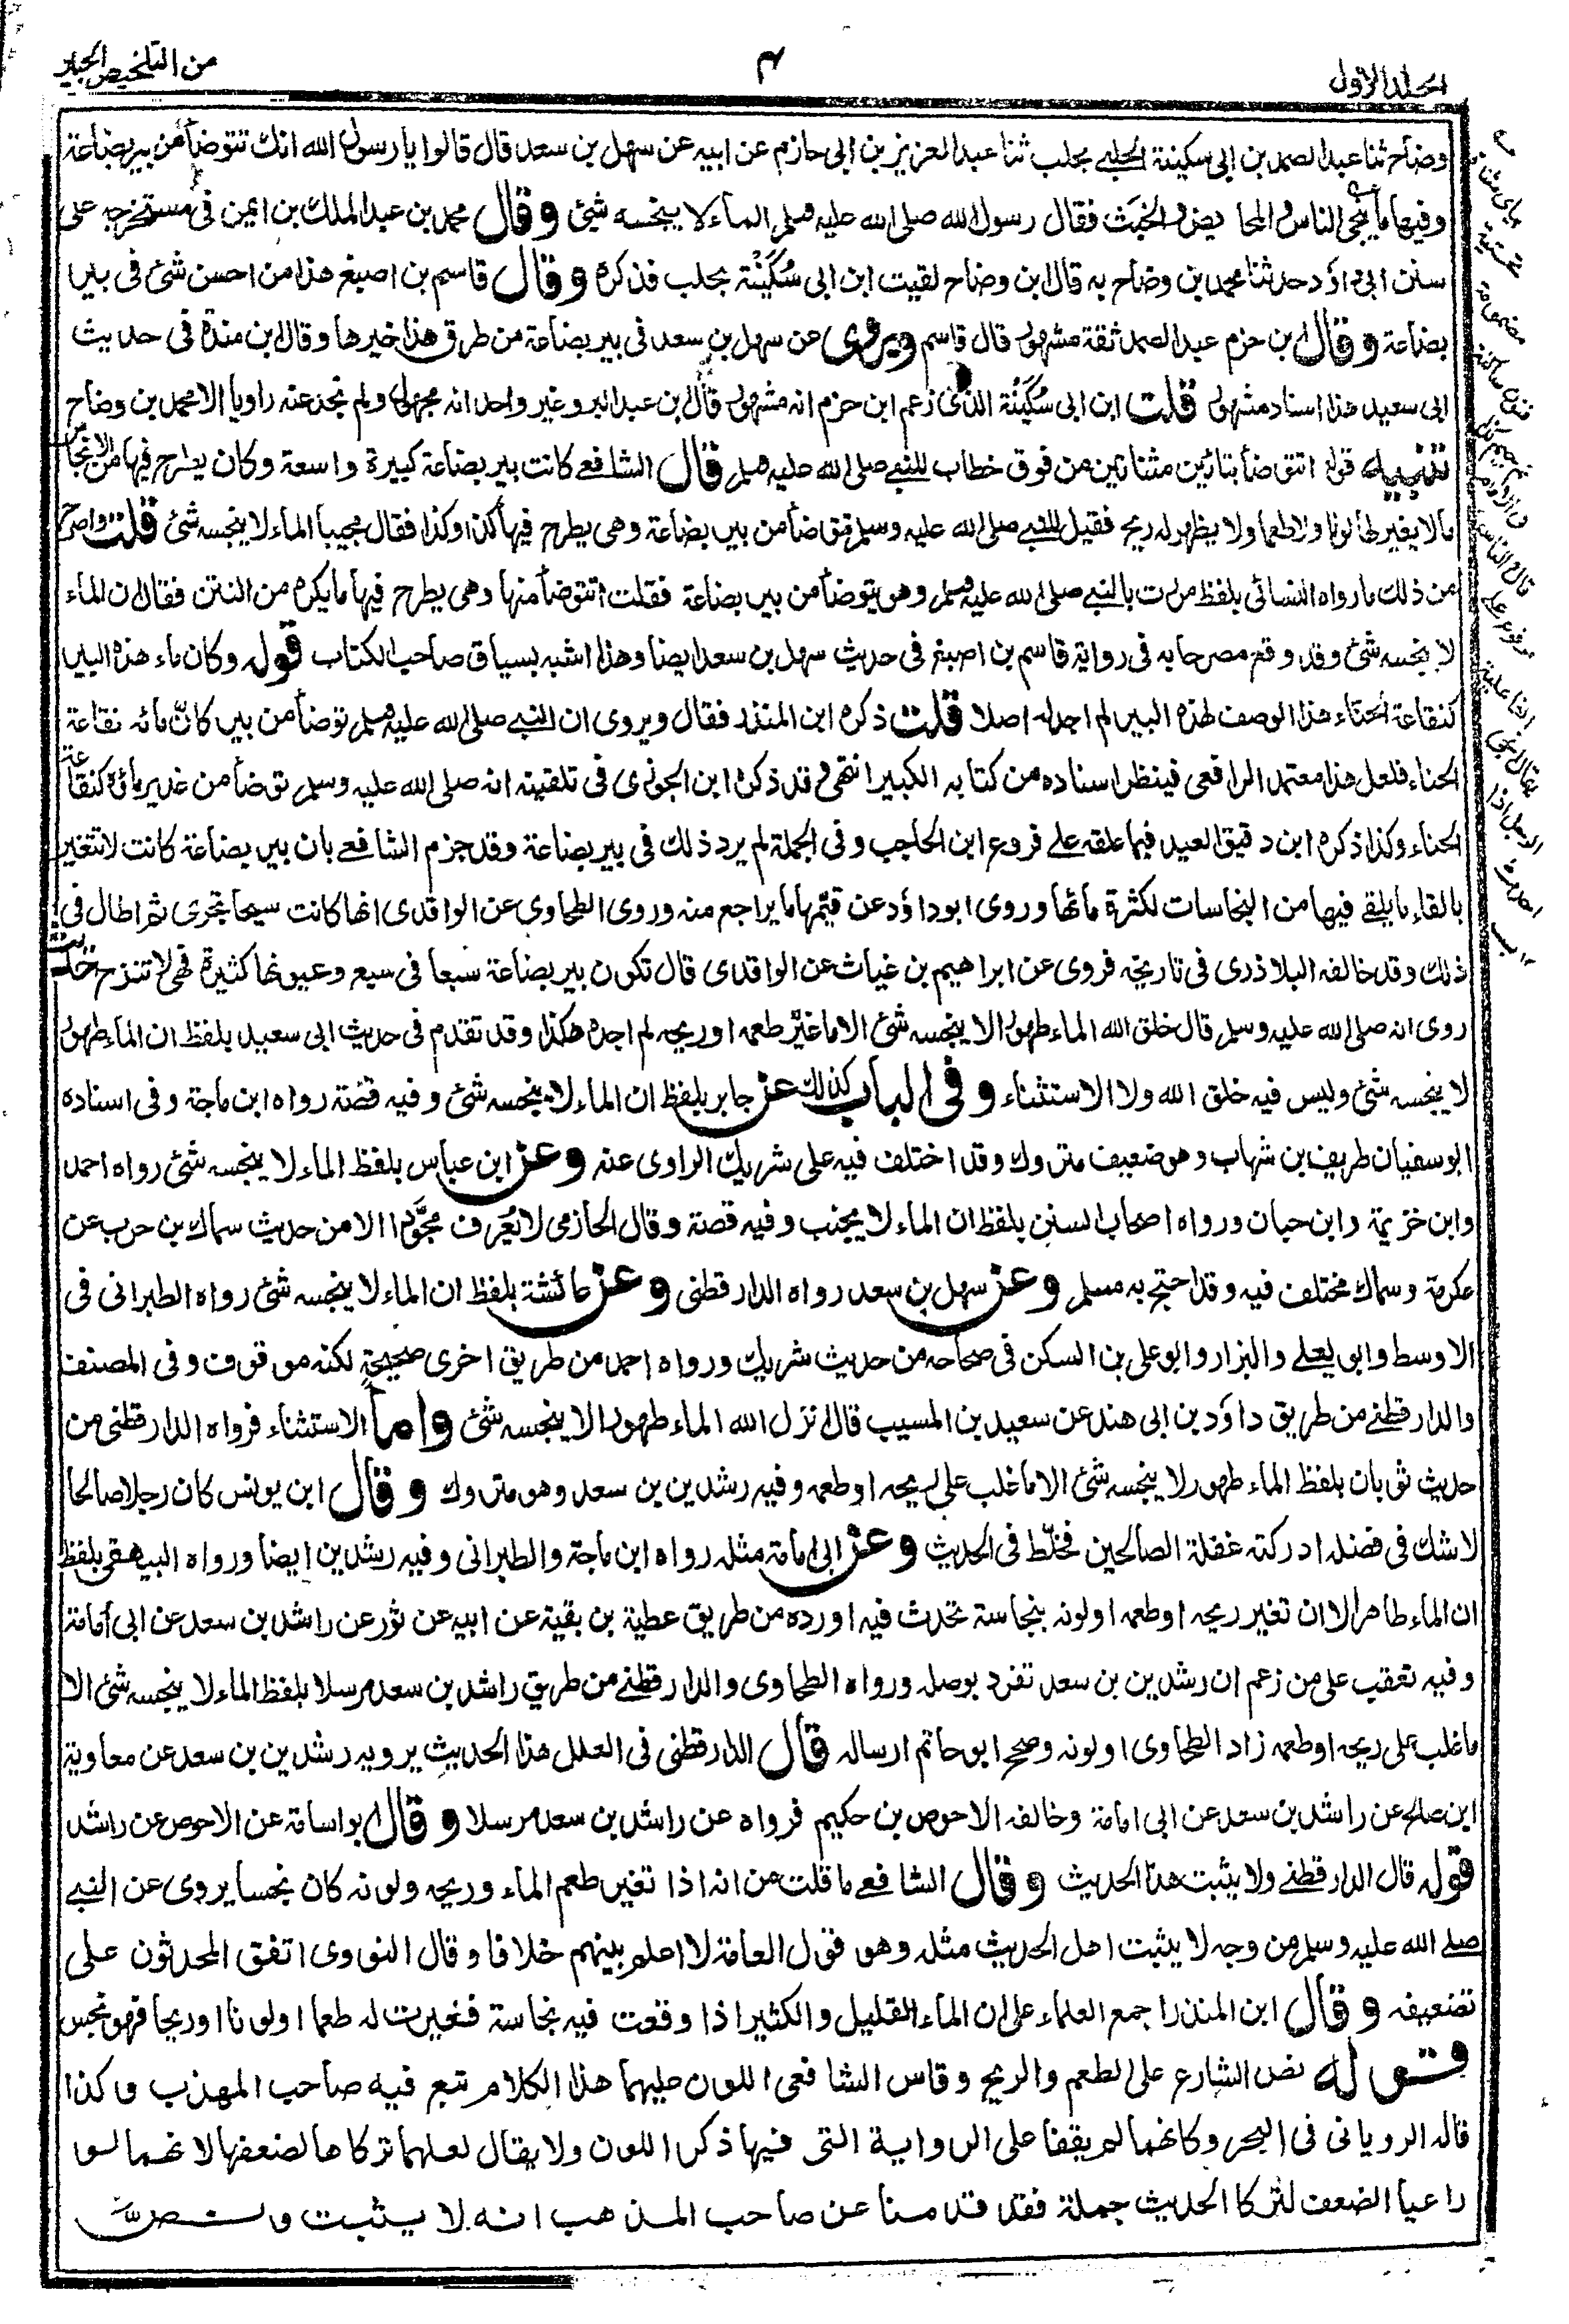 الجلد الاول
٤
من التلخيص الحبير
وضاح ثنا عبد الصمد بن ابى سكينة الحلبى بحلب ثنا عبد العزيز بن ابى حازم عن ابيه عن سهل بن سعد قال قالوا يا رسول الله انك تتوضأ من بير بضاعة
وفيها ما ينجى الناس والمحائض والخبث فقال رسول الله صلى الله عليه وسلم الماء لا ينجسه شئ وقال محمد بن عبد الملك بن ايمن فى مستخرجه على
سنن ابى داؤد حدثنا محمد بن وضاح به قال ابن وضاح لقيت ابن ابى سُكَيْنَة بحلب فذكره وقال قاسم بن اصبغ هذا من احسن شئ فى بير
بضاعة وقال ابن حزم عبد الصمد ثقة مشهور قال قاسم ويروى عن سهل بن سعد فى بير بضاعة من طرق هذا خيرها وقال ابن مندة فى حديث
ابى سعيد هذا اسناد مشهور قلت ابن ابى سُكَيْنَة الذى زعم ابن حزم انه مشهور قال ابن عبد البر وغير واحد انه مجهول ولم نجد عنه راويا الا محمد بن وضاح
تنبيه قوله اتتوضأ بتائين مثناتين من فوق خطاب للنبى صلى الله عليه وسلم قال الشافعى كانت بير بضاعة كبيرة واسعة وكان يطرح فيها من الانجاس
ما لا يغير لها لونا ولا طعما ولا يظهر له ريح فقيل للنبى صلى الله عليه وسلم تتوضأ من بير بضاعة وهى يطرح فيها كذا وكذا فقال مجيبا الماء لا ينجسه شئ قلت واصرح
من ذلك ما رواه النسائى بلفظ مررت بالنبى صلى الله عليه وسلم وهو يتوضأ من بير بضاعة فقلت اتتوضأ منها وهى يطرح فيها ما يكره من النتن فقال ان الماء
لا ينجسه شئ وقد وقع مصرحا به فى رواية قاسم بن اصبغ فى حديث سهل بن سعد ايضا وهذا اشبه بسياق صاحب الكتاب قوله وكان ماء هذه البير
كنقاعة الحناء هذا الوصف لهذه البير لم اجد له اصلا قلت ذكره ابن المنذر فقال ويروى ان النبى صلى الله عليه وسلم توضأ من بير كأنّ مائه نقاعة
الحناء فلعل هذا معتمد الرافعى فينظر اسناده من كتابه الكبير انتهى وقد ذكر ابن الجوزى فى تلقيحه انه صلى الله عليه وسلم توضأ من غدير ماؤه كنقاعة
الحناء وكذا ذكره ابن دقيق العيد فيما علقه على فروع ابن الحاجب وفى الجملة لم يرد ذلك فى بير بضاعة وقد جزم الشافعى بان بير بضاعة كانت لا تتغير
بالقاء ما يلقى فيها من النجاسات لكثرة مائها وروى ابو داؤد عن قيّمها ما يراجع منه وروى الطحاوى عن الواقدى انها كانت سيحا تجرى ثم اطال فى
ذلك وقد خالفه البلاذرى فى تاريخه فروى عن ابراهيم بن غياث عن الواقدى قال تكون بير بضاعة سبعا فى سبع وعيونها كثيرة فهى لا تنزح حديث
روى انه صلى الله عليه وسلم قال خلق الله الماء طهورا لا ينجسه شئ الا ما غيّر طعمه او ريحه لم اجده هكذا وقد تقدم فى حديث ابى سعيد بلفظ ان الماء طهور
لا ينجسه شئ وليس فيه خلق الله ولا الاستثناء وفى الباب كذلك عن جابر بلفظ ان الماء لا ينجسه شئ وفيه قصّة رواه ابن ماجة وفى اسناده
ابو سفيان طريف بن شهاب وهو ضعيف متروك وقد اختلف فيه على شريك الراوى عنه وعن ابن عباس بلفظ الماء لا ينجسه شئ رواه احمد
وابن خزيمة وابن حبان ورواه اصحاب السنن بلفظ ان الماء لا يجنب وفيه قصة وقال الحازمى لا يُعرف مجوّدا الا من حديث سماك بن حرب عن
عكرمة وسماك مختلف فيه وقد احتج به مسلم وعن سهل بن سعد رواه الدارقطنى وعن عائشة بلفظ ان الماء لا ينجسه شئ رواه الطبرانى فى
الاوسط وابو يعلى والبزار وابو على بن السكن فى صحاحه من حديث شريك ورواه احمد من طريق اخرى صحيحة لكنه موقوف وفى المصنف
والدارقطنى من طريق داؤد بن ابى هند عن سعيد بن المسيب قال انزل الله الماء طهورا لا ينجسه شئ واما الاستثناء فرواه الدارقطنى من
حديث ثوبان بلفظ الماء طهور لا ينجسه شئ الا ما غلب على ريحه او طعمه وفيه رشدين بن سعد وهو متروك وقال ابن يونس كان رجلا صالحا
لا شك فى فضله ادركته غفلة الصالحين فخلّط فى الحديث وعن ابى امامة مثله رواه ابن ماجة والطبرانى وفيه رشدين ايضا ورواه البيهقى بلفظ
ان الماء طاهر الا ان تغير ريحه او طعمه او لونه بنجاسة تحدث فيه اورده من طريق عطية بن بقية عن ابيه عن ثور عن راشد بن سعد عن ابى أمامة
وفيه تعقب على من زعم ان رشدين بن سعد تفرد بوصله ورواه الطحاوى والدارقطنى من طريق راشد بن سعد مرسلا بلفظ الماء لا ينجسه شئ الا
ما غلب على ريحه او طعمه زاد الطحاوى او لونه وصحح ابو حاتم ارساله قال الدارقطنى فى العلل هذا الحديث يرويه رشدين بن سعد عن معاوية
ابن صالح عن راشد بن سعد عن ابى امامة وخالفه الاحوص بن حكيم فرواه عن راشد بن سعد مرسلا وقال ابو اسامة عن الاحوص عن راشد
قوله قال الدارقطنى ولا يثبت هذا الحديث وقال الشافعى ما قلت من انه اذا تغير طعم الماء وريحه ولونه كان نجسا يروى عن النبى
صلى الله عليه وسلم من وجه لا يثبت اهل الحديث مثله وهو قول العامة لا اعلم بينهم خلافا وقال النووى اتفق المحدثون على
تضعيفه وقال ابن المنذر اجمع العلماء على ان الماء القليل والكثير اذا وقعت فيه نجاسة فغيرت له طعما او لونا او ريحا فهو نجس
قوله نص الشارع على الطعم والريح وقاس الشافعى اللون عليهما هذا الكلام تبع فيه صاحب المهذب وكذا
قاله الرويانى فى البحر وكانهما لم يقفا على الرواية التى فيها ذكر اللون ولا يقال لعلهما تركاها لضعفها لانهما لو
راعيا الضعف لتركا الحديث جملة فقد قدمنا عن صاحب المذهب انه لا يثبت ونص